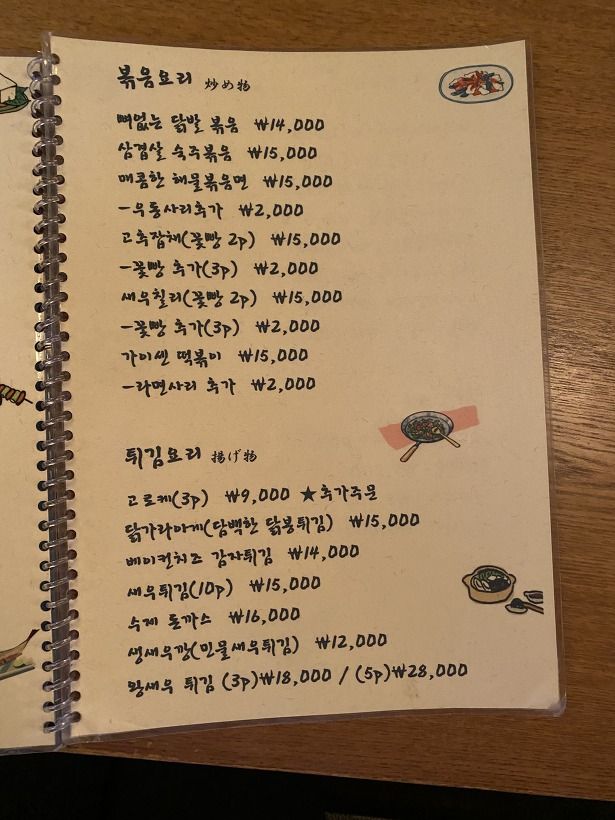 볶음요리 炒め物
뼈없는 닭발 볶음 ₩14,000
삼겹살 숙주볶음 ₩15,000
매콤한 해물볶음면 ₩15,000
-우동사리추가 ₩2,000
고추잡채(꽃빵 2p) ₩15,000
-꽃빵 추가(3p) ₩2,000
새우칠리(꽃빵 2p) ₩15,000
-꽃빵 추가(3p) ₩2,000
가이센 떡볶이 ₩15,000
-라면사리 추가 ₩2,000
튀김요리 揚げ物
고로케(3p) ₩9,000 ★추가주문
닭가라아게(담백한 닭봉튀김) ₩15,000
베이컨치즈 감자튀김 ₩14,000
새우튀김(10p) ₩15,000
수제 돈까스 ₩16,000
생새우깡(민물새우튀김) ₩12,000
왕새우 튀김 (3p)₩18,000 / (5p)₩28,000